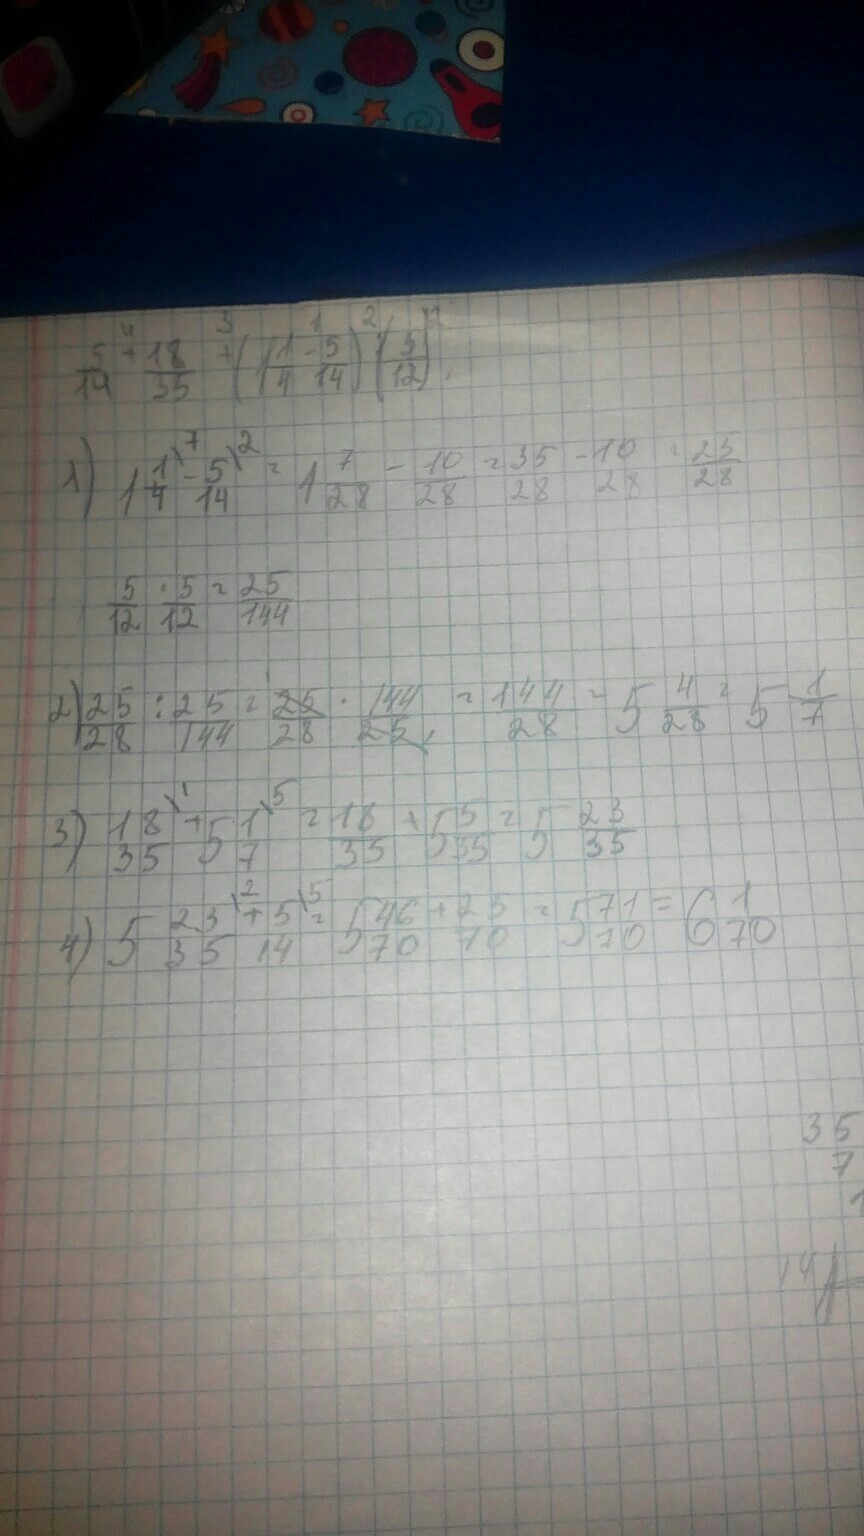 4 3 1 2 2
5/14 + 18/35 + (1 1/4 - 5/14) : (5/12)
1) 1 1/4 \7 - 5/14 \2 = 1 7/28 - 10/28 = 35/28 - 10/28 = 25/28
5/12 · 5/12 = 25/144
2) 25/28 : 25/144 = 25/28 · 144/25 = 144/28 = 5 4/28 = 5 1/7
3) 18/35 \1 + 5 1/7 \5 = 18/35 + 5 5/35 = 5 23/35
4) 5 23/35 \2 + 5/14 \5 = 5 46/70 + 25/70 = 5 71/70 = 6 1/70
35
7
1
14